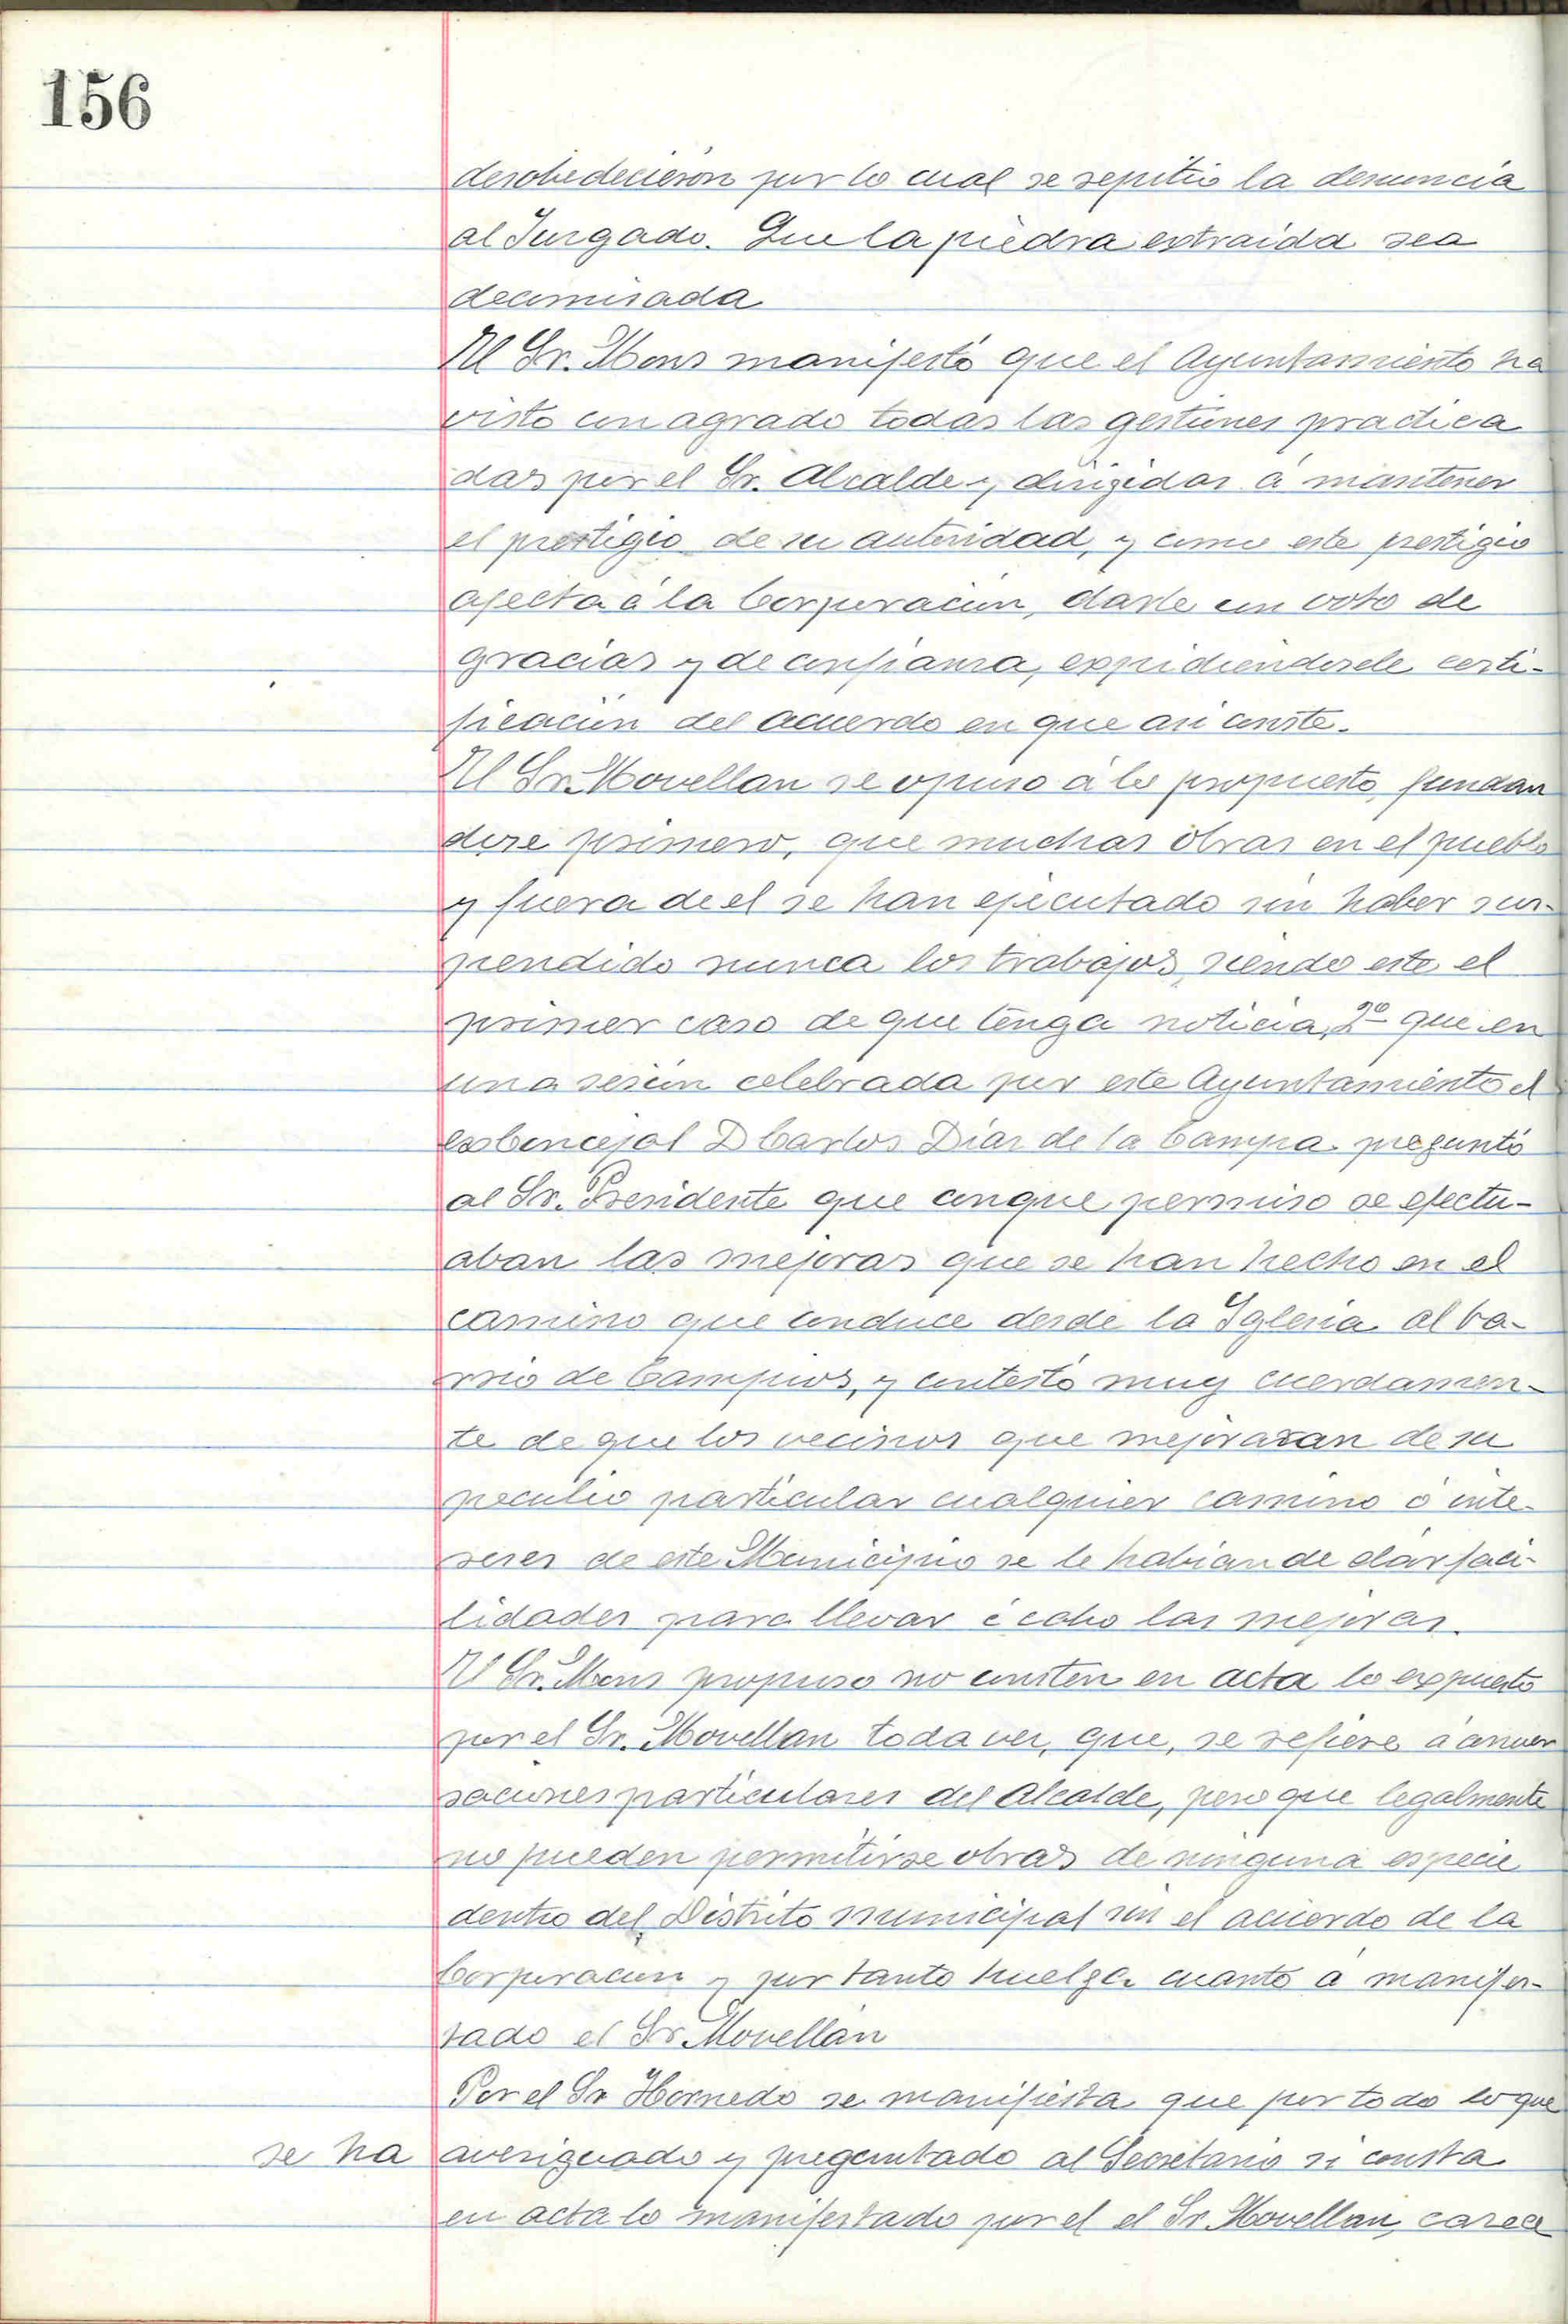 156
desobedecieron por lo cual se repitio la denuncia
al Juzgado. Que la piedra extraida sea
decomisada
El Sr. Mons manifestó que el Ayuntamiento ha
visto con agrado todas las gestiones practica
das por el Sr. Alcalde y, dirigidas á mantener
el prestigio de su autoridad, y como este prestigio
afecta á la Corporacion, darle un voto de
gracias y de confianza, expidiendosele certi-
ficación del acuerdo en que asi conste.
El Sr. Movellan se opuso á lo propuesto, fundan
dose primero, que muchas obras en el pueblo
y fuera de el se han ejecutado sin haber sus-
pendido nunca los trabajos, siendo este el
primer caso de que tenga noticia, 2º que en
una sesion celebrada por este Ayuntamiento el
exConcejal D Carlos Díaz de la Campa preguntó
al Sr. Presidente que conque permiso se efectu-
aban las mejoras que se han hecho en el
camino que conduce desde la Iglesia al ba-
rrio de Campios, y contestó muy cuerdamen-
te de que los vecinos que mejoraran de su
peculio particular cualquier camino ó inte-
reses de este Municipio se le habian de dar faci-
lidades para llevar á cabo las mejoras.
El Sr. Mons propuso no consten en acta lo expuesto
por el Sr. Movellan toda vez, que, se refiere á conver
saciones particulares del Alcalde, pero que legalmente
no pueden permitirse obras de ninguna especie
dentro del Distrito municipal sin el acuerdo de la
Corporacion y por tanto huelga cuanto á manifes-
tado el Sr. Movellan
Por el Sr Hornedo se manifiesta que por todo lo que
se ha averiguado y preguntado al Secretario si consta
en acta lo manifestado por el el Sr. Movellan, carece